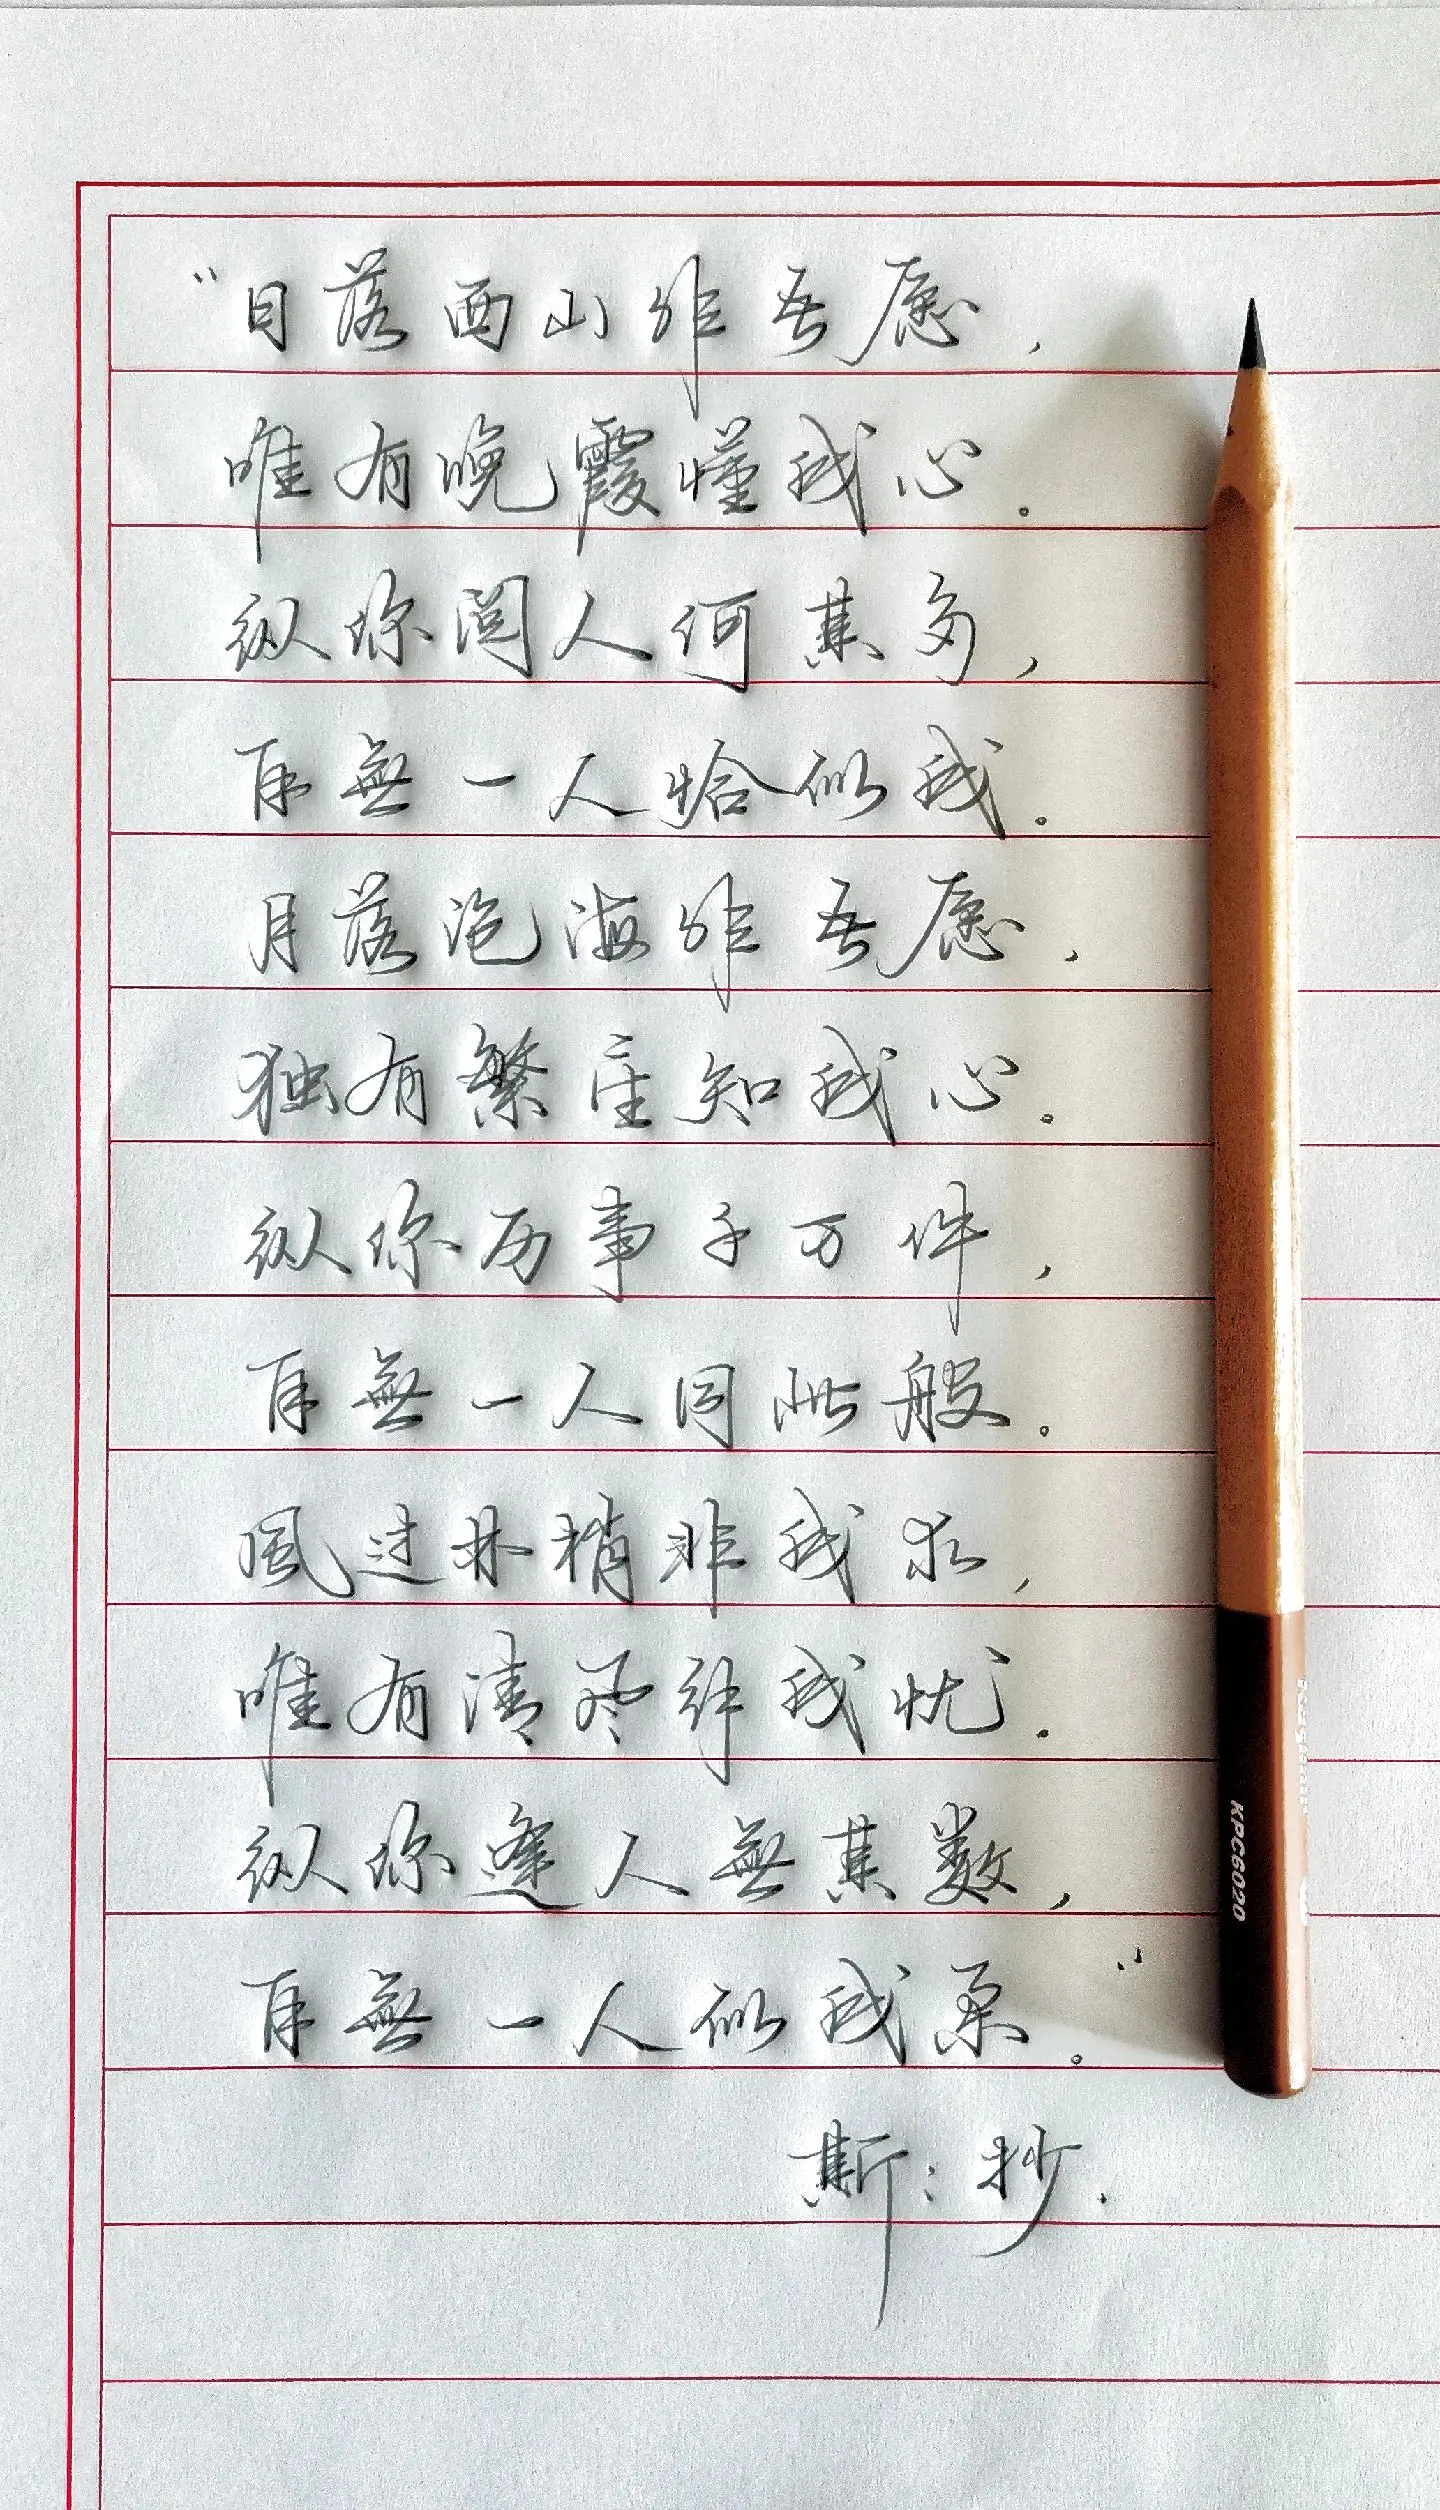 “日落西山非吾愿，
唯有晚霞懂我心。
纵你阅人何其多，
再無一人恰似我。
月落沧海非吾愿，
独有繁星知我心。
纵你历事千万件，
再無一人同此般。
風过林梢非我求，
唯有清风解我忧。
纵你逢人無其数，
再無一人似我柔。”
斯：抄.
KPC6020